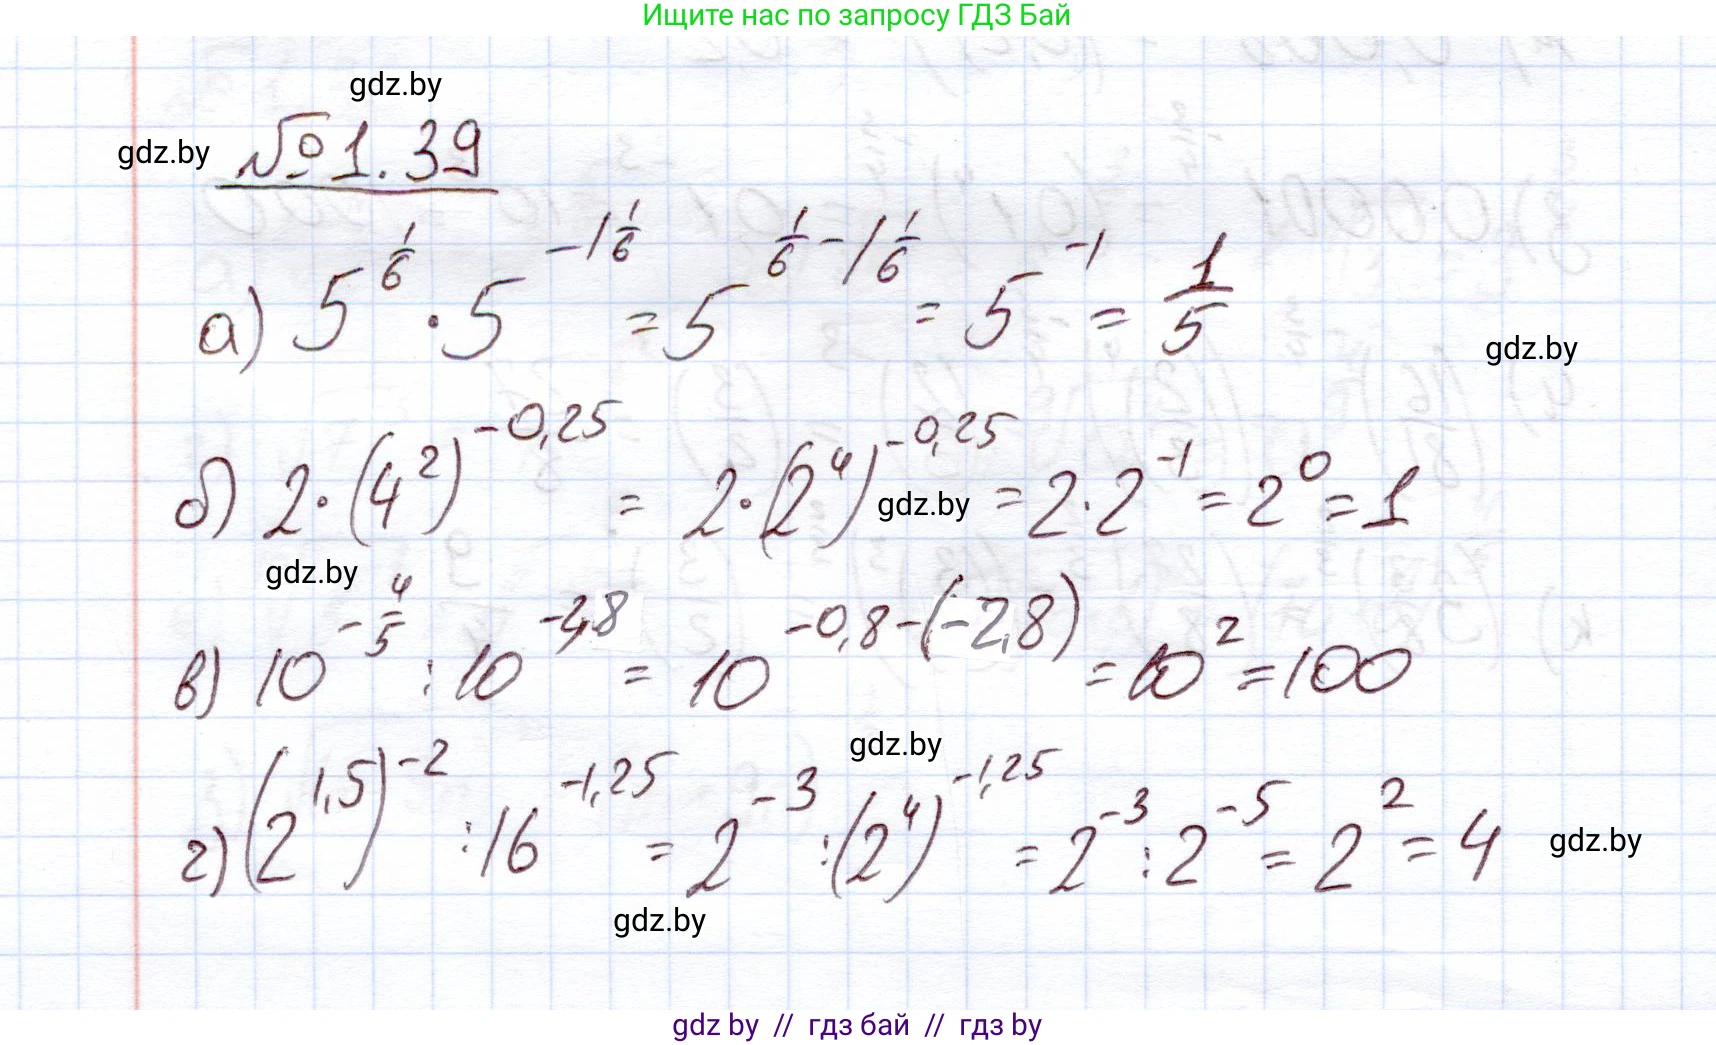 Ищите нас по запросу ГДЗ Бай
gdz.by
gdz.by №1.39
а) 5^{1/6} · 5^{-1 1/6} = 5^{1/6 - 1 1/6} = 5^{-1} = 1/5
gdz.by
б) 2 · (4^2)^{-0,25} = 2 · (2^4)^{-0,25} = 2 · 2^{-1} = 2^0 = 1
gdz.by
gdz.by
в) 10^{-4/5} : 10^{-2,8} = 10^{-0,8-(-2,8)} = 10^2 = 100
gdz.by
г) (2^{1,5})^{-2} : 16^{-1,25} = 2^{-3} : (2^4)^{-1,25} = 2^{-3} : 2^{-5} = 2^2 = 4
gdz.by
gdz.by
gdz by // гдз бай // гдз by